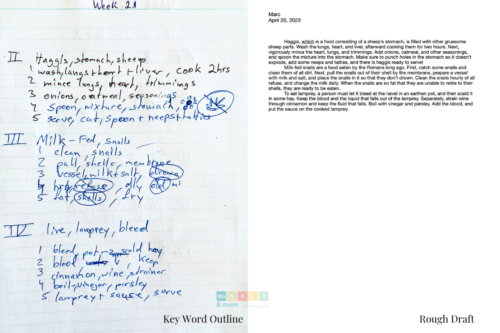 Week 21
II Haggis, stomach, sheep
1 wash, lungs + heart + liver, cook 2hrs
2 mince lungs, heart, trimmings
3 onions, oatmeal, seasonings
4 Spoon, mixture, stomach,
5 serve, eat, spoon + neeps + tatties
III Milk-Fed, snails
1 clean, snails
2 pull, shells, membrane
3 vessel, milk + salt, drown
4 hrly, refuse, dly, old mi
5 fat, shells, fry
IV live, lamprey, bleed
1 bleed, pot → scald hay
2 blood, keep
3 cinnamon, wine, strainer
4 boil, vinegar, parsley
5 lamprey + sauce, serve
Key Word Outline
Marc
April 20, 2023
Haggis, which is a food consisting of a sheep's stomach, is filled with other gruesome
sheep parts. Wash the lungs, heart, and liver, afterward cooking them for two hours. Next,
vigorously mince the heart, lungs, and trimmings. Add onions, oatmeal, and other seasonings,
and spoon the mixture into the stomach. Make sure to punch holes in the stomach so it doesn't
explode, add some neeps and tatties, and there is haggis ready to serve!
Milk-fed snails are a food eaten by the Romans long ago. First, catch some snails and
clean them of all dirt. Next, pull the snails out of their shell by the membrane, prepare a vessel
with milk and salt, and place the snails in it so that they don't drown. Clean the snails hourly of all
refuse, and change the milk daily. When the snails are so fat that they are unable to retire to their
shells, they are ready to be eaten.
To eat lamprey, a person must let it bleed at the naval in an earthen pot, and then scald it
in some hay. Keep the blood and the liquid that falls out of the lamprey. Separately, strain wine
through cinnamon and keep the fluid that falls. Boil with vinegar and parsley. Add the blood, and
put the sauce on the cooked lamprey.
& mom
Rough Draft